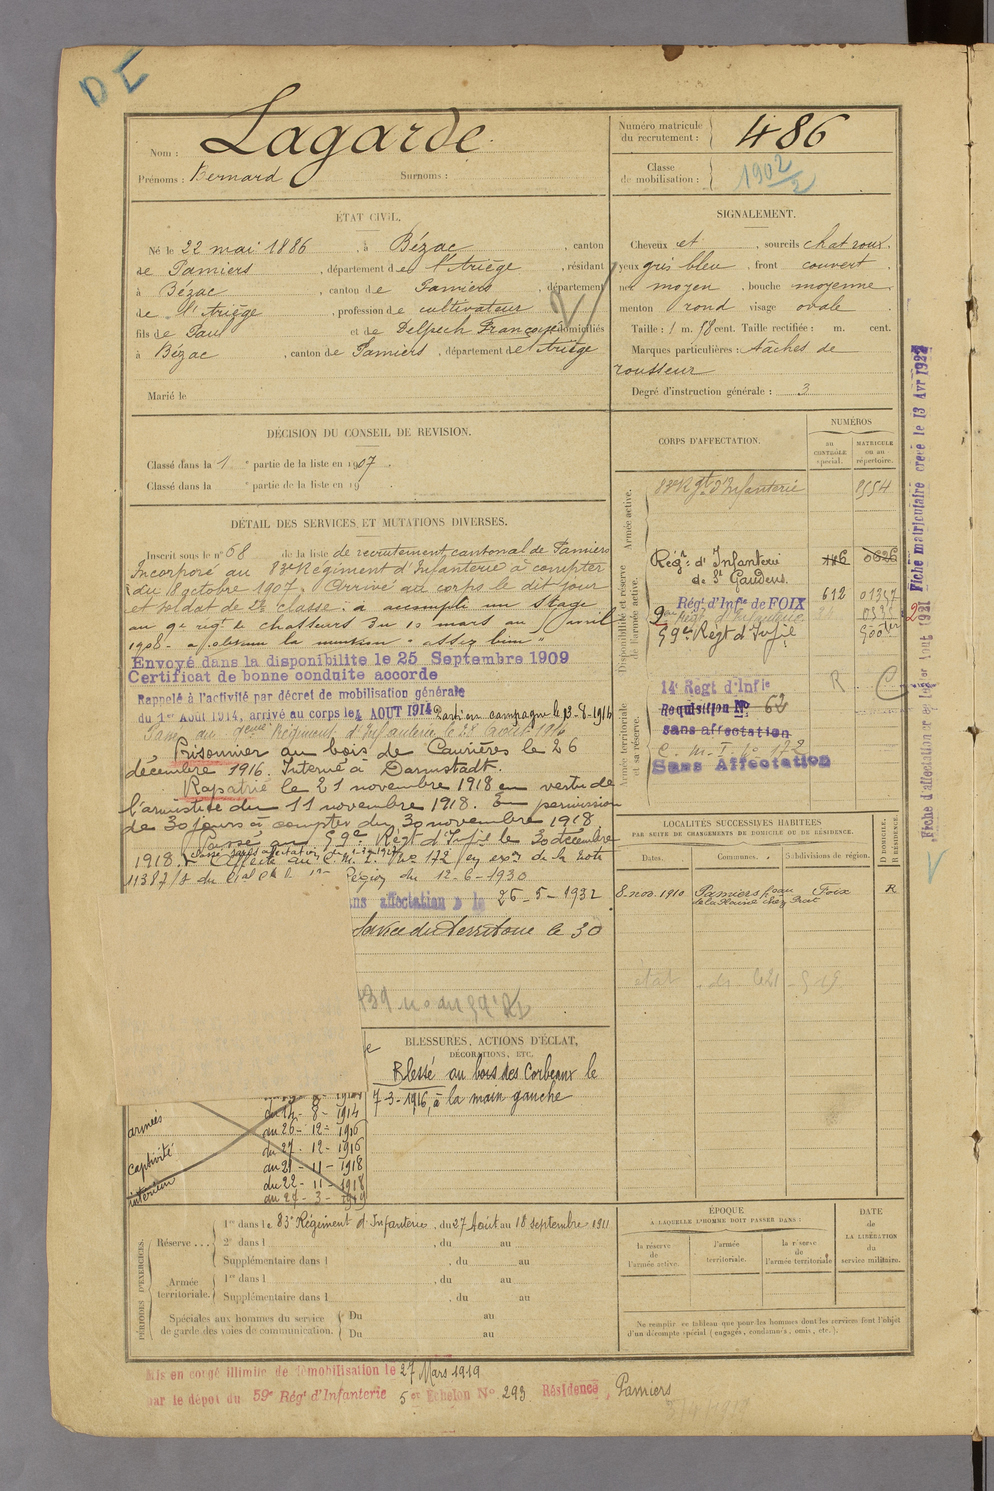 DE
Nom : Lagarde
Prénoms : Bernard Surnoms :
Numéro matricule du recrutement : 486
Classe de mobilisation : 1902/2
ÉTAT CIVIL.
Né le 22 mai 1886, à Bézac, canton
de Pamiers, département de l'Ariège, résidant
à Bézac, canton de Pamiers, département
de l'Ariège, profession de cultivateur
fils de Paul et de Delpech Françoise domiciliés
à Bézac, canton de Pamiers, département de l'Ariège
Marié le
SIGNALEMENT.
Cheveux et, sourcils chat roux.
yeux gris bleu, front couvert,
nez moyen, bouche moyenne
menton rond visage ovale.
Taille : 1 m. 58 cent. Taille rectifiée : m. cent.
Marques particulières : tâches de
rousseur
Degré d'instruction générale : 3
DÉCISION DU CONSEIL DE REVISION.
Classé dans la 1e partie de la liste en 1907.
Classé dans la e partie de la liste en 19
DÉTAIL DES SERVICES ET MUTATIONS DIVERSES.
Inscrit sous le n° 68 de la liste de recrutement cantonal de Pamiers
Incorporé au 83e Régiment d'Infanterie à compter
du 18 octobre 1907. Arrivé au corps le dit jour
et soldat de 2e classe : a accompli un stage
au 9e régt de chasseurs du 10 mars au avril
1908 - a obtenu la mention "assez bien"
Envoyé dans la disponibilité le 25 Septembre 1909
Certificat de bonne conduite accordé
Rappelé à l'activité par décret de mobilisation générale
du 1er Août 1914, arrivé au corps le 4 AOUT 1914 Parti en campagne le 13-8-1914
Passé au Régiment d'Infanterie le 28 août 1916
Prisonnier au bois de Caurières le 26
décembre 1916. Interné à Darmstadt.
Rapatrié le 21 novembre 1918 en vertu de
l'armistice du 11 novembre 1918. En permission
de 30 jours à compter du 30 novembre 1918
Passé au 59e Régt d'Infie le 30 décembre
1918.
Affecté au C.M.I. No 172 en exon de la note
11387/S du Gal Ct la Région du 12-6-1930
sans affectation le 26-5-1932
Service du Territoire le 30
CORPS D'AFFECTATION.
NUMÉROS
au CONTRÔLE spécial.
MATRICULE ou au répertoire.
Armée active.
83e Régt d'Infanterie 8554
Disponibilité et réserve de l'armée active.
Régt d'Infanterie de St Gaudens. 446 0626
Régt d'Infie de FOIX 612 01347
59e Régt d'Infie
Armée territoriale et sa réserve.
14e Régt d'Infie R C
Requisition No 62
sans affectation
C.M.I. No 172
Sans Affectation
Fiche matriculaire créée le 13 Avr 1922
LOCALITÉS SUCCESSIVES HABITÉES
PAR SUITE DE CHANGEMENTS DE DOMICILE OU DE RÉSIDENCE.
Dates. Communes. Subdivisions de région.
D DOMICILE, R RÉSIDENCE.
8 nov. 1910 Pamiers Foix R
BLESSURES, ACTIONS D'ÉCLAT,
DÉCORATIONS, ETC.
Blessé au bois des Corbeaux le
7-3-1916, à la main gauche
armées du 14-8-1914
au 26-12-1916
captivité du 27-12-1916
au 21-11-1918
intérieur du 22-11-1918
au 27-3-1919
PÉRIODES D'EXERCICES.
Réserve ... 1re dans le 83e Régiment d'Infanterie, du 27 Août au 18 septembre 1911
2e dans l , du au
Supplémentaire dans l , du au
Armée territoriale. 1re dans l , du au
Supplémentaire dans l , du au
Spéciales aux hommes du service de garde des voies de communication. Du au
Du au
ÉPOQUE
A LAQUELLE L'HOMME DOIT PASSER DANS :
la réserve de l'armée active.
l'armée territoriale.
la réserve de l'armée territoriale
DATE de LA LIBÉRATION du service militaire.
Ne remplir ce tableau que pour les hommes dont les services font l'objet
d'un décompte spécial (engagés, condamnés, omis, etc.).
Mis en congé illimité de démobilisation le 27 Mars 1919
par le dépôt du 59e Régt d'Infanterie 5e Echelon No 293 Résidence, Pamiers